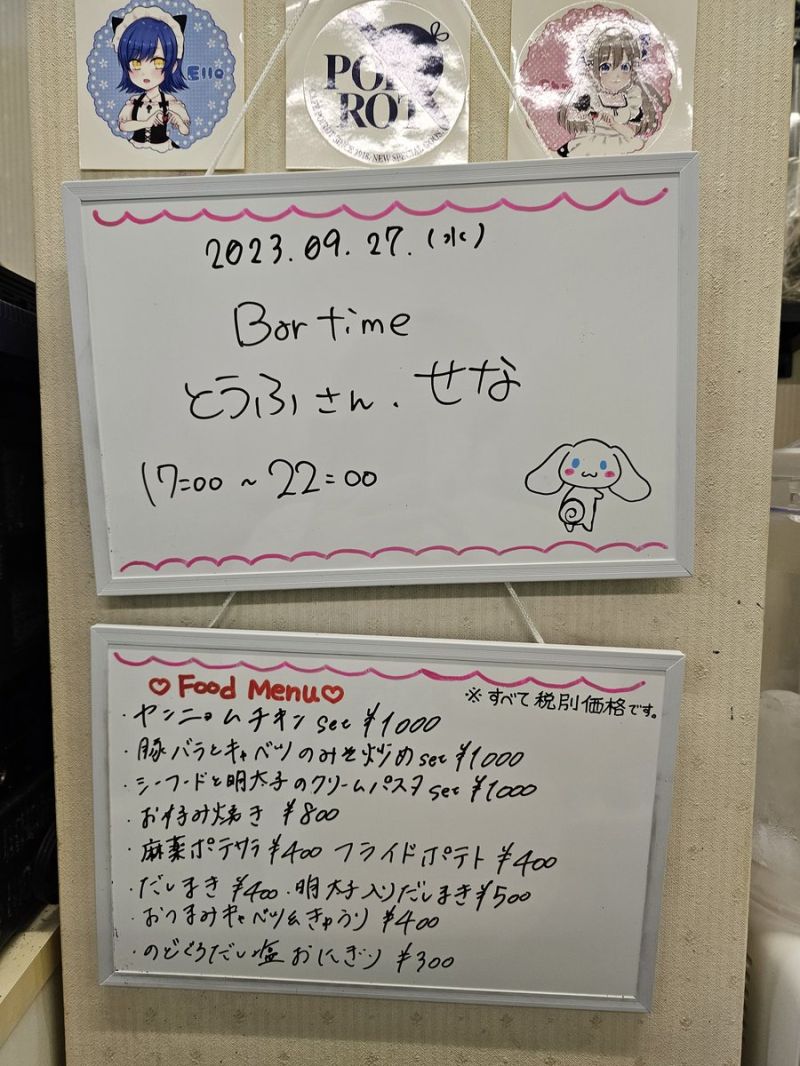 Ella
2023.09.27.(水)
Bar time
とうふさん. せな
17:00 ~ 22:00
♡ Food Menu ♡
※すべて税別価格です。
・ヤンニョムチキン set ¥1000
・豚バラとキャベツのみそ炒め set ¥1000
・シーフードと明太子のクリームパスタ set ¥1000
・お好み焼き ¥800
・麻薬ポテサラ ¥400 フライドポテト ¥400
・だしまき ¥400 ・明太子入りだしまき ¥500
・おつまみキャベツ&きゅうり ¥400
・のどぐろだし塩おにぎり ¥300